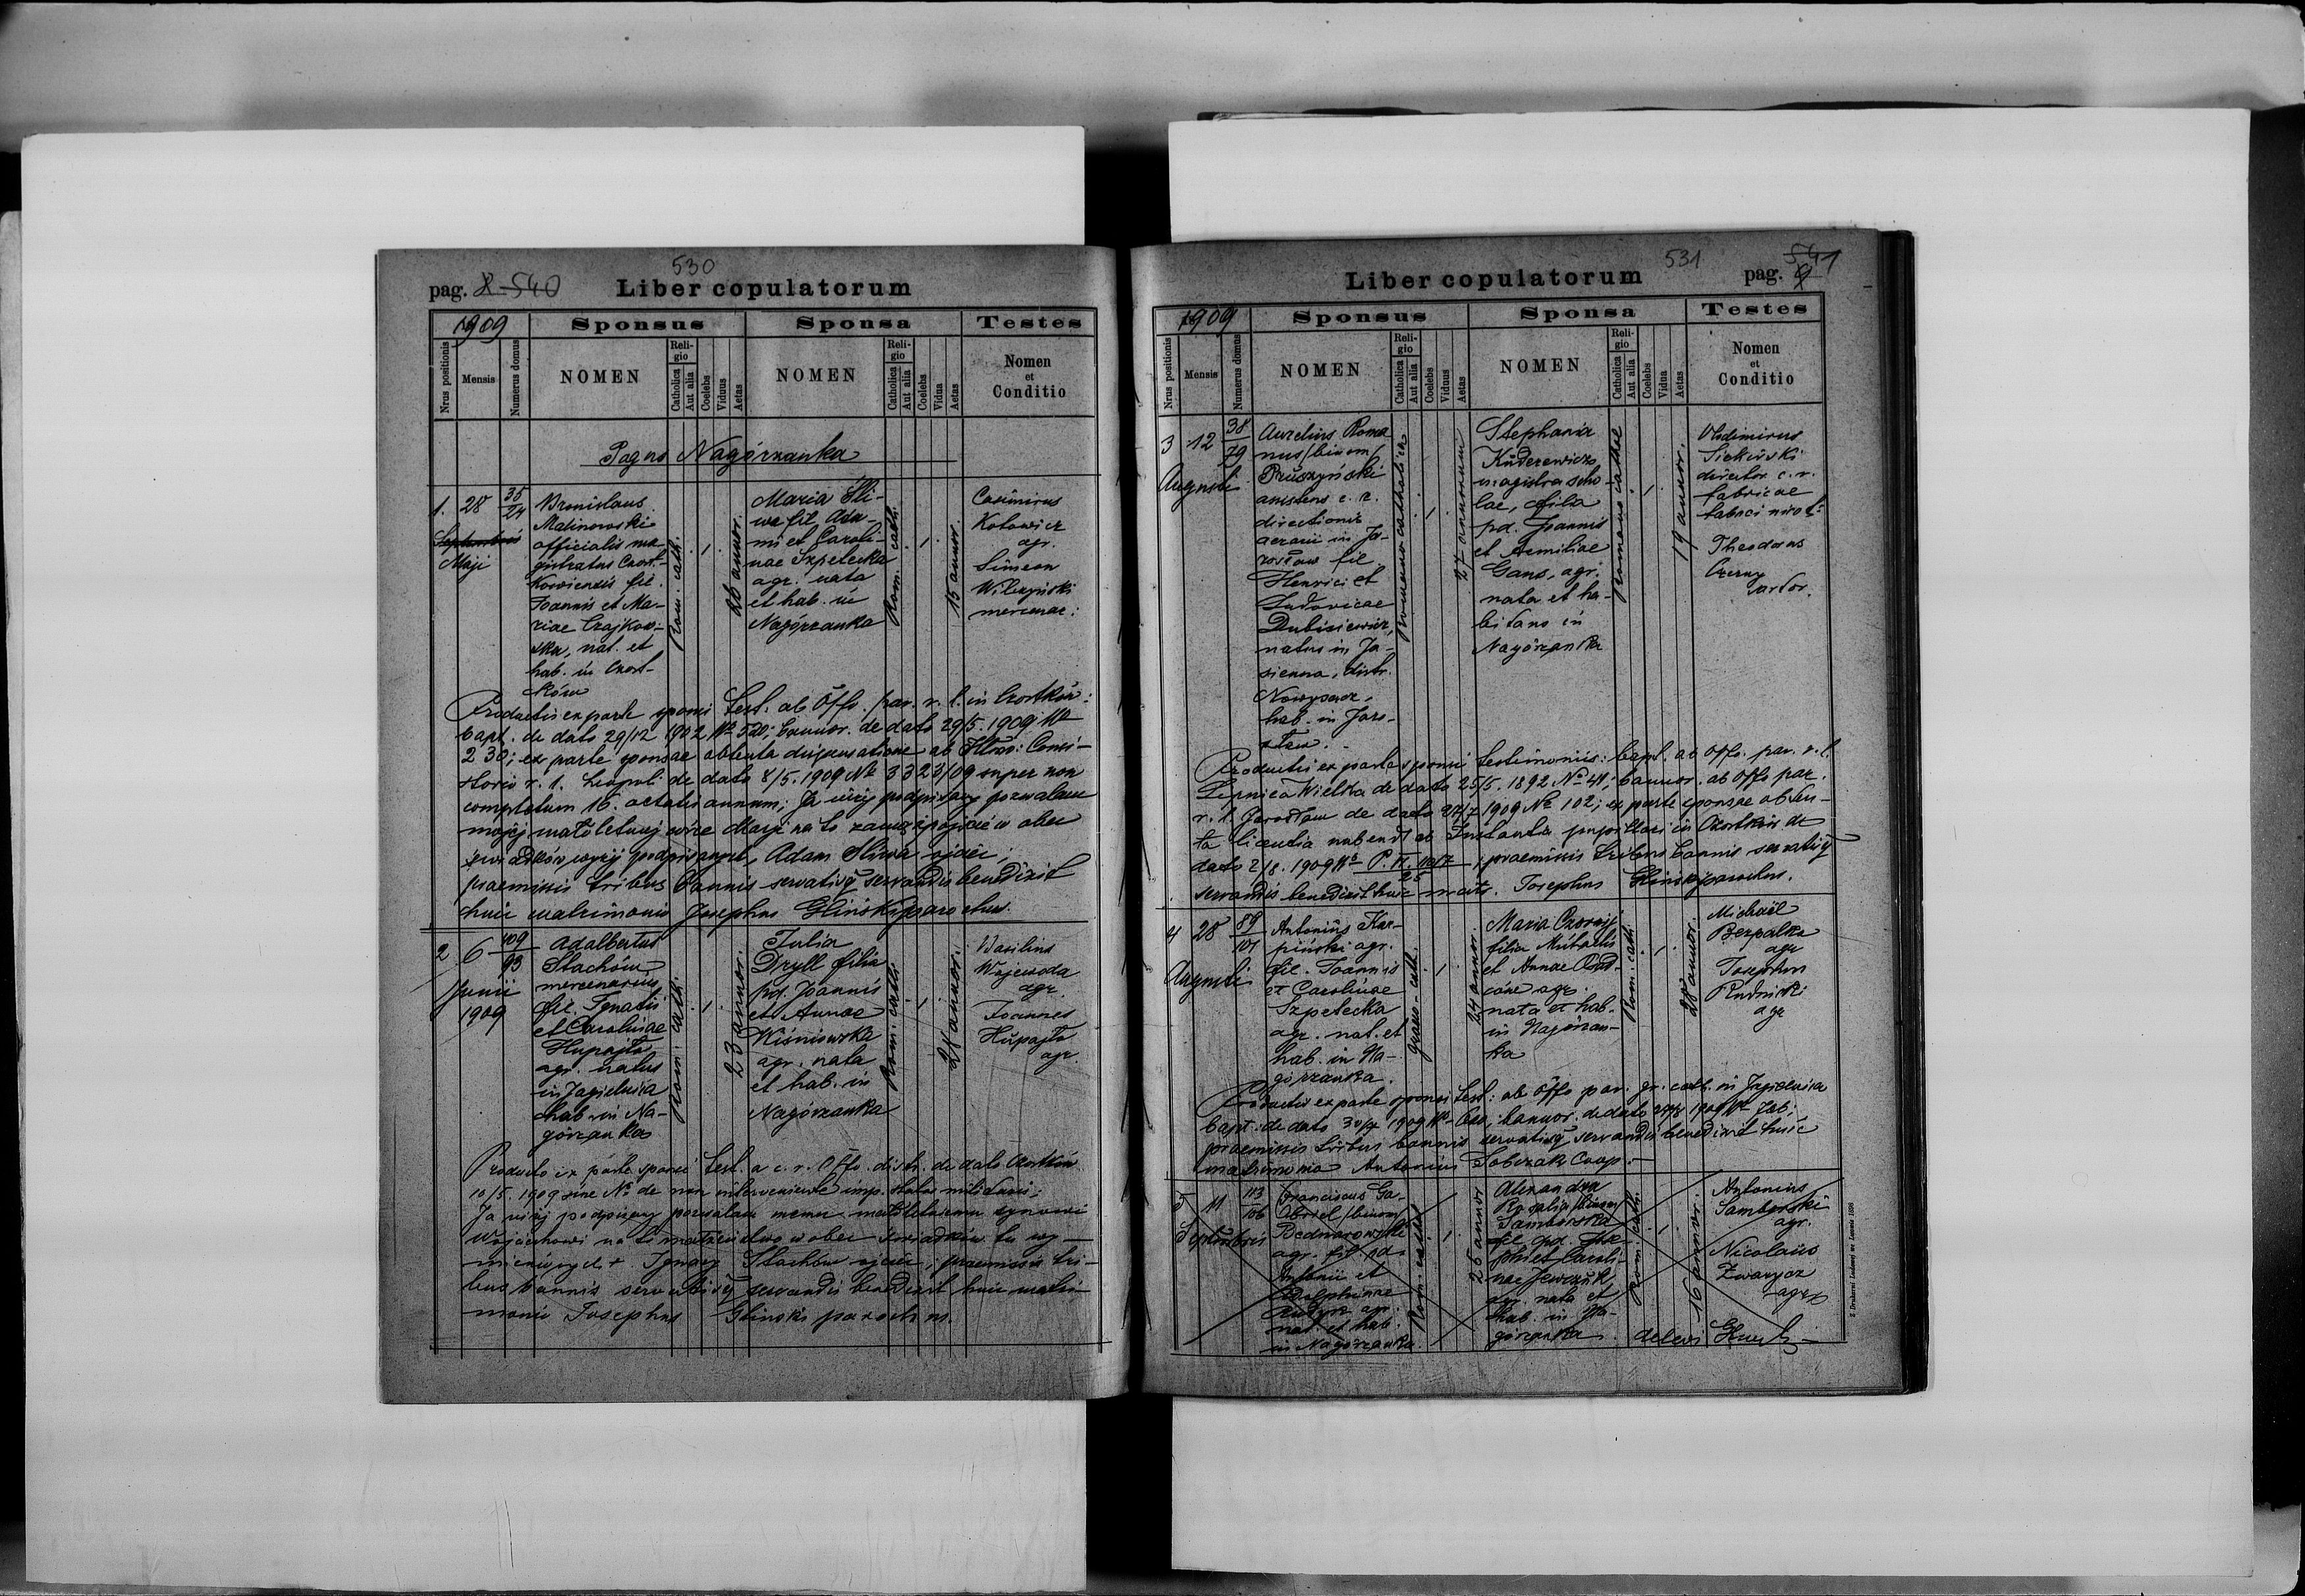 530
pag. 8 540 Liber copulatorum
1909 Sponsus Sponsa Testes
Nrus positionis Mensis Numerus domus NOMEN Religio Catholica Aut alia Coelebs Viduus Aetas NOMEN Religio Catholica Aut alia Coelebs Vidua Aetas Nomen et Conditio
Pagus Nagórzanka
1. 28 35/24
Septembris
Maji
Bronislaus
Malinowski
officialis ma-
gistratus Czort-
koviensis fil.
Joannis et Ma-
riae Czajkow-
ska, nat. et
hab. in Czort-
ków
Rom. cath.
26 annor.
Maria Sli-
wa fil. Ada-
mi et Caroli-
nae Szpetecka
agr. nata
et hab. in
Nagórzanka
Rom. cath.
15 annor.
Casimirus
Kotowicz
agr.
Simeon
Wilczyński
mercenar:
Productis ex parte sponsi test. ab Offo. par. r. l. in Czortków:
bapt. de dato 29/12 1902 No 520; bannor. de dato 29/5. 1909 No
230; ex parte sponsae obtenta dispensatione ab Illmo: Consi-
storio r. l. Leopoli de dato 8/5. 1909 No 3323/09 super non
completum 16. aetatis annum; Ja niżej podpisany pozwalam
mojej małoletniej córce Maryi na to zamążpójście w obec
świadków wyżej podpisanych, Adam Sliwa ojciec;
praemissis tribus bannis servatisq servandis benedixit
huic matrimonio Josephus Gliński parochus.
2 6 109/93
Junii
1909
Adalbertus
Stachów
mercenarius
fil. Ignatii
et Carolinae
Hupajło
agr. natus
in Jagielnica
hab. in Na-
górzanka
Rom. cath.
23 annor.
Julia
Dryll filia
pd. Joannis
et Annae
Wiśniowska
agr. nata
et hab. in
Nagórzanka
Rom. cath.
21 annor.
Wasilius
Wojewoda
agr.
Joannes
Hupajło
agr.
Producto ex parte sponsi test. a c. r. Offo. distr. de dato Czortków
10/5. 1909 sine No de non interveniente imp. status militaris;
Ja niżej podpisany pozwalam memu małoletniemu synowi
Wojciechowi na to małżeństwo w obec świadków tu wy-
mienionych + Ignacy Stachów ojciec, praemissis tri-
bus bannis servatisq servandis benedixit huic matri-
monio Josephus Gliński parochus.
531
Liber copulatorum pag. 9 541
1909 Sponsus Sponsa Testes
Nrus positionis Mensis Numerus domus NOMEN Religio Catholica Aut alia Coelebs Viduus Aetas NOMEN Religio Catholica Aut alia Coelebs Vidua Aetas Nomen et Conditio
3 12 38/79
Augusti
Aurelius Roma-
nus /binom/
Pruszyński
assistens c. r.
directionis
aerarii in Ja-
rosław fil.
Henrici et
Ludovicae
Dubisiewicz,
natus in Ja-
sienna, distr.
Nowysącz,
hab. in Jaro-
sław.
Romano catholica
27 annorum
Stephania
Kuderewicz
magistra scho-
lae, filia
pd. Joannis
et Aemiliae
Gans, agr.
nata et ha-
bitans in
Nagórzanka
Romano cathol
19 annor.
Vladimirus
director c. r.
fabricae
tabaci
Theodorus
Czerny
sartor.
Productis ex parte sponsi testimoniis: bapt. ab Offo. par. r. l.
Lipnica Wielka de dato 25/5. 1892 No 41; bannor. ab Offo par.
r. l. Jarosław de dato 27/7 1909 No 102; ex parte sponsae obten-
ta licentia nubendi ab Instantia pupillari in Czortków de
dato 2/8. 1909 No P. II. 110/7 / 25; praemissis tribus bannis servatisq
servandis benedixit huic matr. Josephus Gliński parochus.
4 28 89/101
Augusti
Antonius Kar-
piński agr.
fil. Joannis
et Carolinae
Szpetecka
agr. nat. et
hab. in Na-
górzanka.
graeo-cath.
24 annor.
Maria Czorny
filia Michaelis
et Annae
agr.
nata et hab.
in Nagórzan-
ka
Rom. cath.
28 annor.
Michaël
Bezpalko
agr
Josephus
Rudnicki
agr
Productis ex parte sponsi test: ab Offo par. gr. cath. in Jagielnica
bapt: de dato 30/7 1909 No; bannor. de dato 1909 No;
praemissis tribus bannis servatisq servandis benedixit huic
matrimonio Antonius Sobczak Coop.
5 11 113/106
Septembris
Franciscus Ga-
/binom/
Bednarowski
agr. fil. pd.
Antonii et
Adolphinae
agr.
nat. et hab.
in Nagórzanka.
Rom. cathol
26 annor
Alexandra
Rosalia /binom/
Samborska
fil. pd. Jose-
phi et Caroli-
nae
agr. nata et
hab. in Na-
górzanka.
Rom. cath.
16 annor.
Antonius
Samborski
agr.
Nicolaus
Zwarycz
agr
delevi
Z Drukarni Ludowej we Lwowie 1886